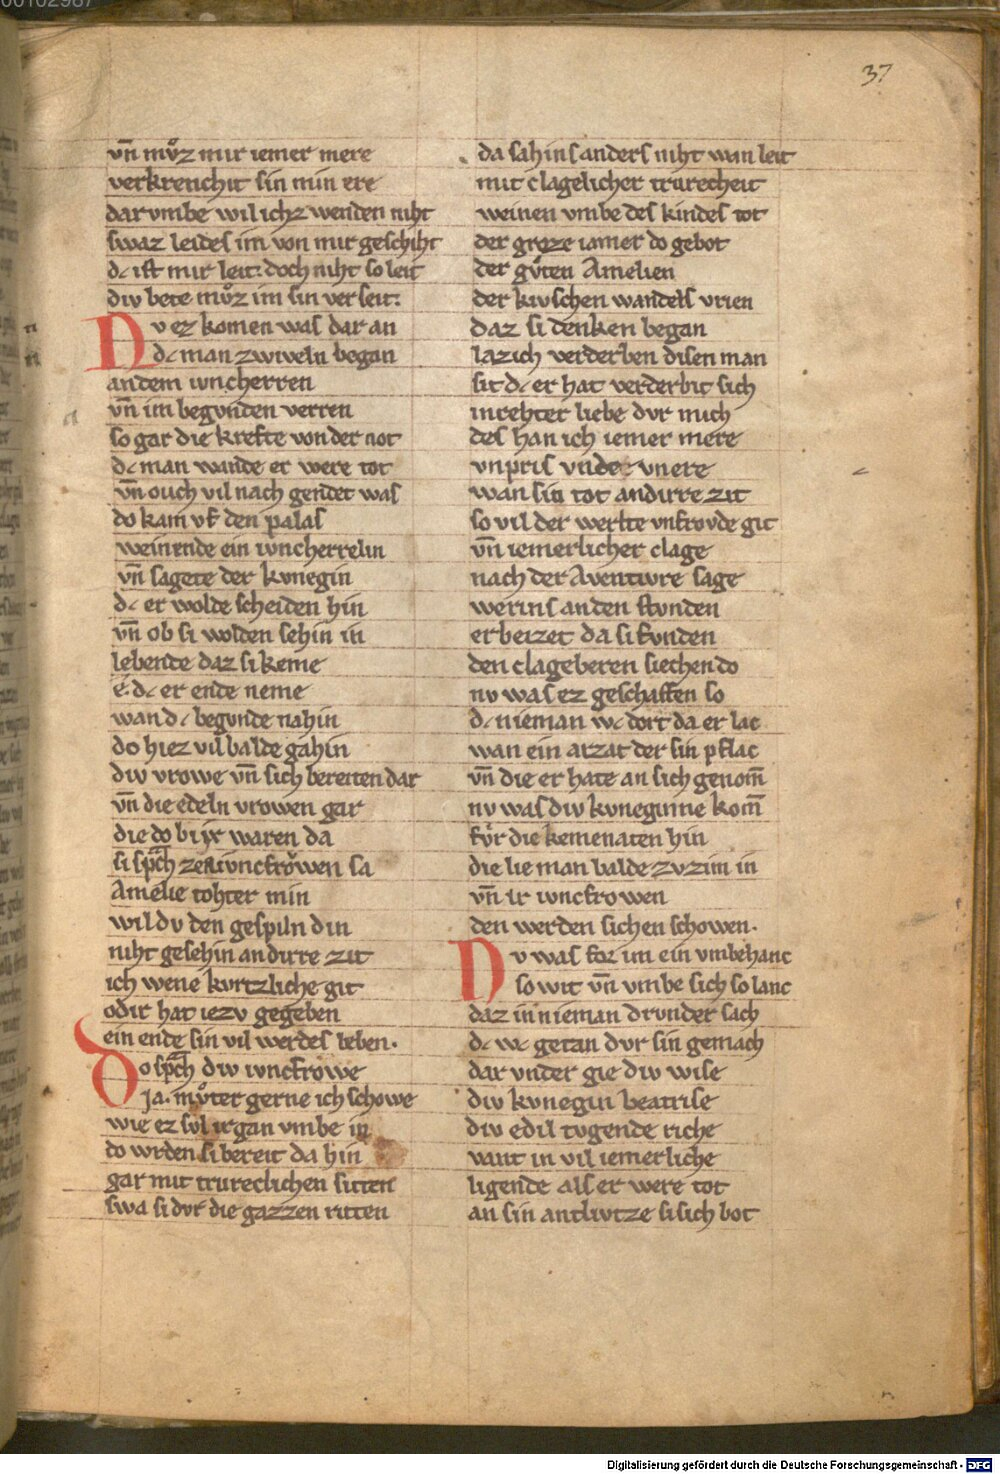 37
vn̄ mvͦz mir iemer mere
verkrenchit sin min ere
darvmbe wil ichz wenden niht
swaz leides im von mir geschiht
dc ist mir leit: doch niht so leit
div bete mvͦz im sin verseit:
Nv ez komen was dar an
dc man zwiveln began
an dem ivncherren
vn̄ im begvnden verren
so gar die krefte von der not
dc man wande er were tot
vn̄ ouch vil nach gendet was
do kam vf den palas
weinende ein ivncherrelin
vn̄ sagete der kvnegin
dc er wolde scheiden hin
vn̄ ob si wolden sehin in
lebende daz si keme
é dc er ende neme
wand c begvnde nahin
do hiez vil balde gahin
div vrowe vn̄ sich bereiten dar
vn̄ die edeln vrowen gar
die do bi ir waren da
si spᵃch zer ivncfrôwen sa
Amelie tohter min
wil dv den gespiln din
niht gesehin an dirre zit
ich wene kvrtzliche git
odir hat iezv gegeben
ein ende sin vil werdes leben.
do spᵃch div ivncfrowe
Ja. mvͦter gerne ich schowe
wie ez sol irgan vmbe in
do wrden si bereit da hin
gar mit trureclichen sitten
swa si dvr die gazzen ritten
da sah ins anders niht wan leit
mit clagelicher trurecheit
weinen vmbe des kindes tot
der groze iamer do gebot
der gvͦten Amelien
der kivschen wandels vrien
daz si denken began
laz ich verderben disen man
sit dc er hat verderbit sich
in rehter liebe dvr mich
des han ich iemer mere
vnpris vnde vnere
wan sin tot an dirre zit
so vil der werlte vnfrovde git
vn̄ iemerlicher clage
nach der Aventivre sage
werins an den stvnden
erbeizet da si fvnden
den clageberen siechen do
nv was ez geschaffen so
dc nieman wc dort da er lac
wan ein arzat der sin pflac
vn̄ die er hate an sich genom̄
nv was div kvneginne kom̄
fvͤr die kemenaten hin
die lie man balde zvzim in
vn̄ ir ivncfrowen
den werden sichen schowen.
Nv was for im ein vmbehanc
so wit vn̄ vmbe sich so lanc
daz in nieman drvnder sach
dc wc getan dvr sin gemach
dar vnder gie div wise
div kvnegin beatrise
div edil tvgende riche
vant in vil iemerliche
ligende als er were tot
an sin antlivtze si sich bot
Digitalisierung gefördert durch die Deutsche Forschungsgemeinschaft - DFG